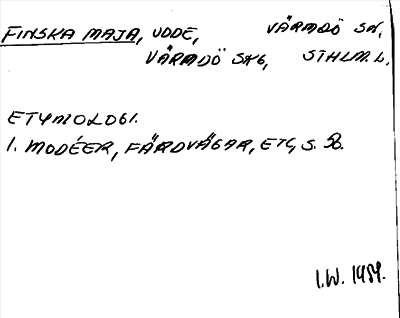 FINSKA MAJA, UDDE, VÄRMDÖ SN,
VÄRMDÖ SKG, STHLM. L.
ETYMOLOGI.
1. MODÉER, FÄRDVÄGAR, ETC, S. 58.
I.W. 1989.